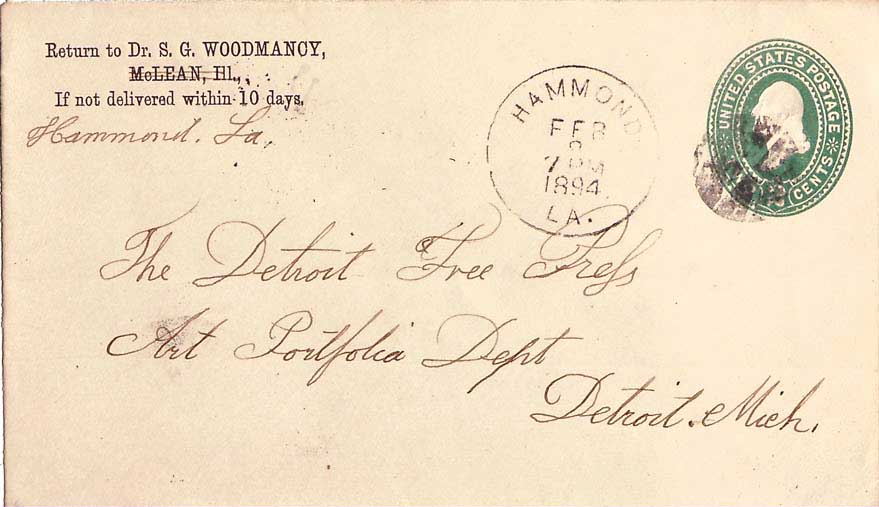 Return to Dr. S. G. WOODMANCY,
McLEAN, Ill.,
If not delivered within 10 days.
Hammond. La.
HAMMOND
FEB
7 PM
1894
LA.
UNITED STATES POSTAGE
CENTS
The Detroit Free Press
Art Portfolia Dept
Detroit. Mich.